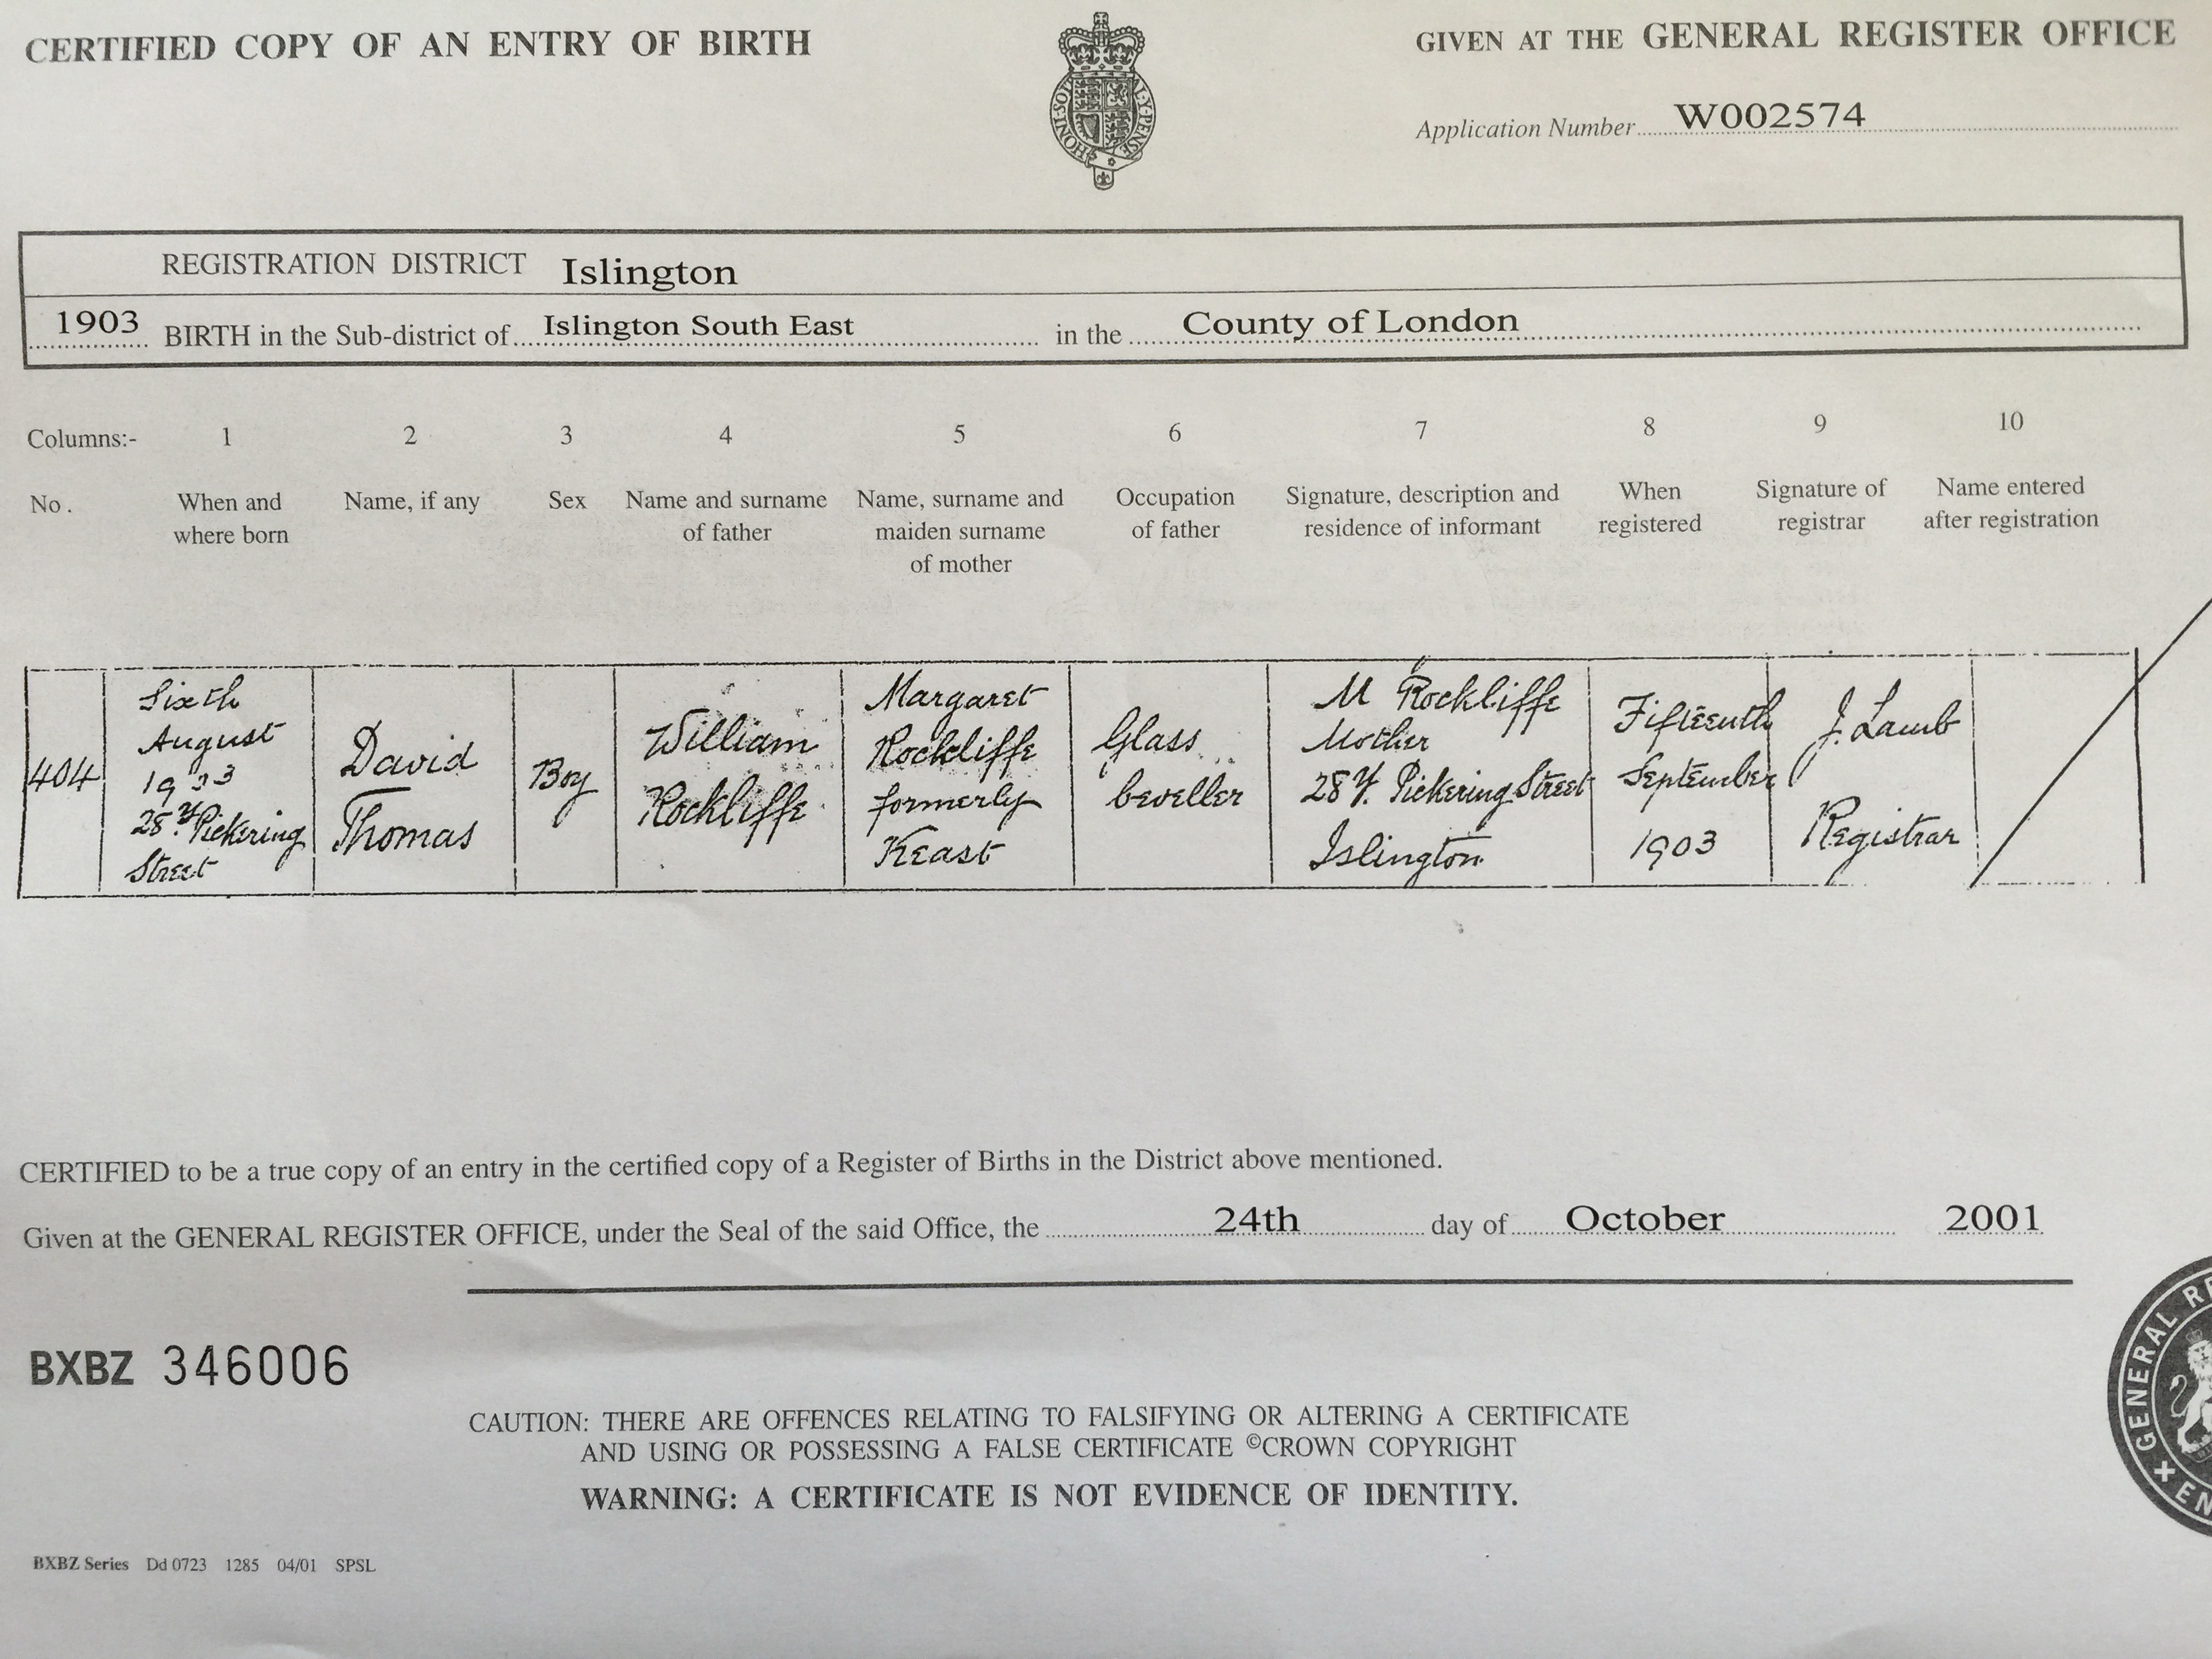 CERTIFIED COPY OF AN ENTRY OF BIRTH
GIVEN AT THE GENERAL REGISTER OFFICE
Application Number W002574
REGISTRATION DISTRICT Islington
1903 BIRTH in the Sub-district of Islington South East in the County of London
Columns:- 1 2 3 4 5 6 7 8 9 10
No. When and where born
Name, if any
Sex
Name and surname of father
Name, surname and maiden surname of mother
Occupation of father
Signature, description and residence of informant
When registered
Signature of registrar
Name entered after registration
404
Sixth
August
1903
28 Pickering
Street
David
Thomas
Boy
William
Rockliffe
Margaret
Rockliffe
formerly
Keast
Glass
beveller
M Rockliffe
Mother
28 Pickering Street
Islington
Fifteenth
September
1903
J. Lamb
Registrar
CERTIFIED to be a true copy of an entry in the certified copy of a Register of Births in the District above mentioned.
Given at the GENERAL REGISTER OFFICE, under the Seal of the said Office, the 24th day of October 2001
BXBZ 346006
CAUTION: THERE ARE OFFENCES RELATING TO FALSIFYING OR ALTERING A CERTIFICATE
AND USING OR POSSESSING A FALSE CERTIFICATE ©CROWN COPYRIGHT
WARNING: A CERTIFICATE IS NOT EVIDENCE OF IDENTITY.
BXBZ Series Dd 0723 1285 04/01 SPSL
GENERAL